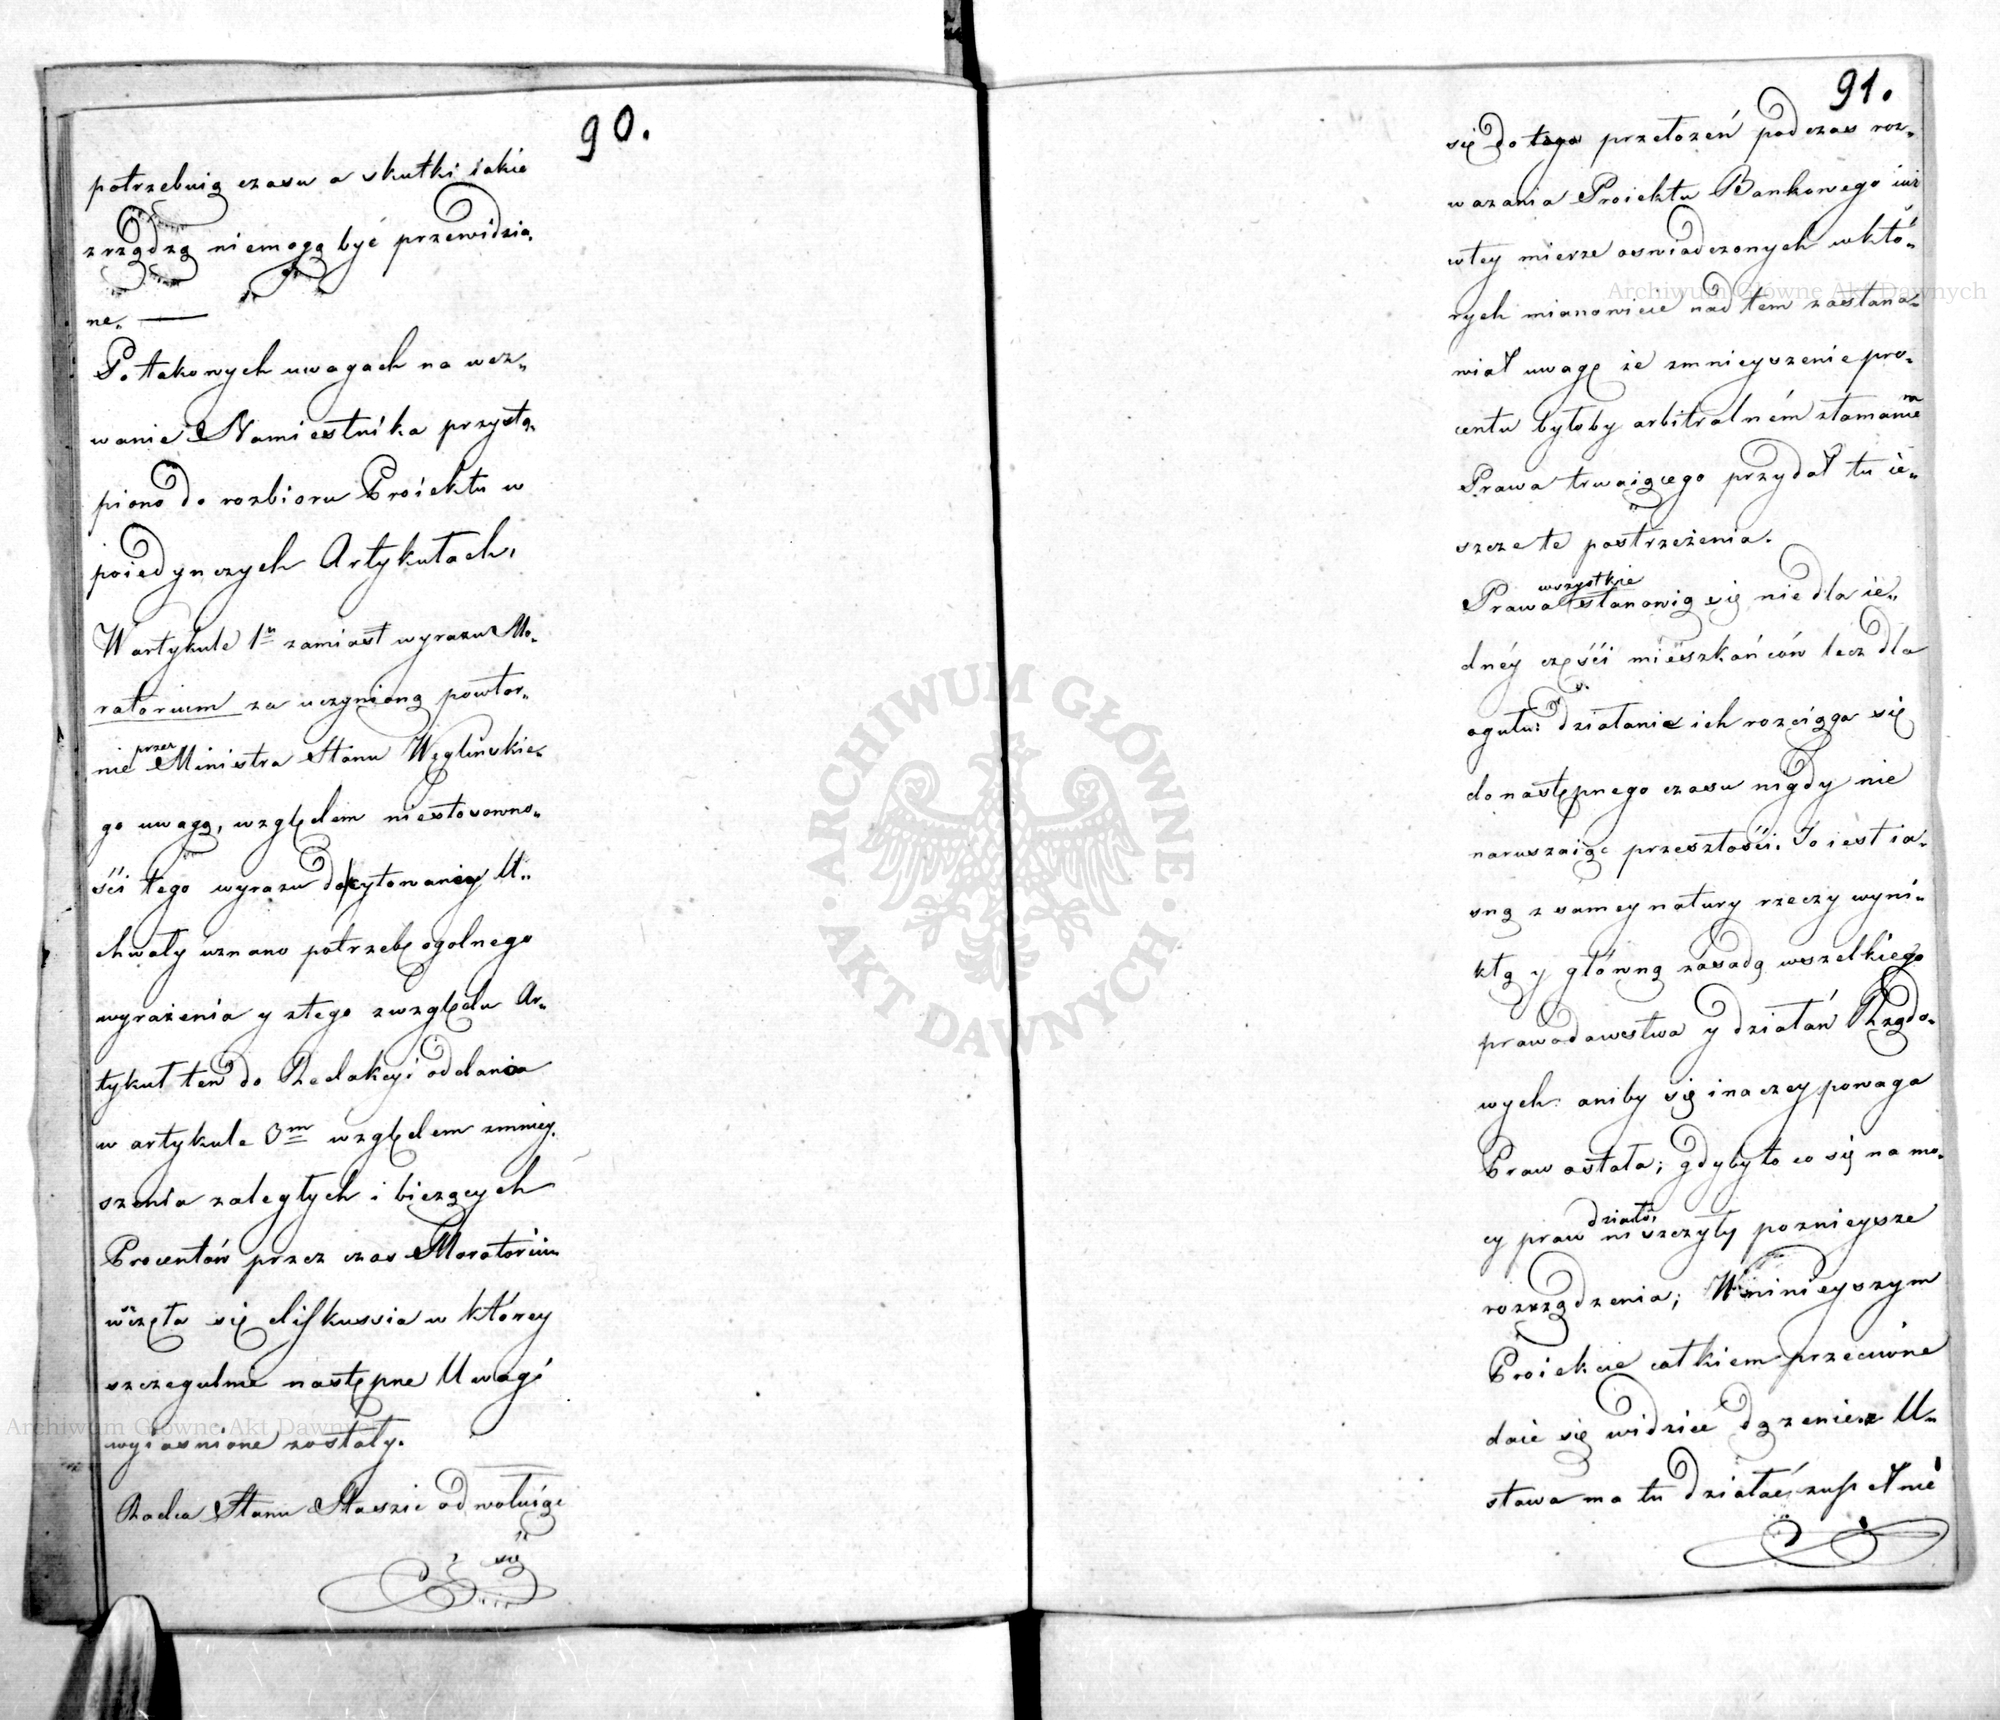 90.
potrzebuią czasu a skutki iakie
zrządzą niemogą być przewidzia„
ne„ —
Po takowych uwagach na wez„
wanie Namiestnika przystą„
piono do rozbioru Proiektu w
poiedynczych Artykułach,
W artykule 1ⁿ zamiast wyrazu Mo„
ratorium za uczynioną powtor„
nie przez Ministra Stanu Węglinskie„
go uwagą, względem niestosowno„
ści tego wyrazu do cytowaney U„
chwały uznano potrzebę ogolnego
wyrażenia y ztego zwzględu Ar„
tykuł ten do Redakcyi oddania
w artykule 3m względem zmniey„
szenia zaległych i bieżących
Procentów przez czas Moratorium
wszczęła się diskussia w którey
szczegulnie następne Uwagi
wyiasnione zostały.
Radca Stanu Staszic odwołuiąc
się
91.
się do tego przełożeń podczas roz„
ważania Proiektu Bankowego iuż
wtey mierze oswiadczonych wktó„
rych mianowicie nad tem zastana„
wiał uwagę że zmnieyszenie pro„
centu byłoby arbitralném złamaniem
Prawa trwaiącego przydał tu ie„
szcze te postrzeżenia.
Prawa wszystkie stanowią się nie dla ie„
dnéy części mieszkańców lecz dla
ogułu: działanie ich rozciąga się
do następnego czasu nigdy nie
naruszaiąc przeszłości. To iest ia„
sną z samey natury rzeczy wyni„
kłą y główną zasadą wszelkiego
prawodawstwa y działań Rządo„
wych. aniby się inaczey powaga
Praw ostała; gdyby to co się na mo„
cy praw działo, niszczyły poznieysze
rozrządzenia; W ninieyszym
Proiekcie całkiem przeciwne
daie się widzieć dążenie. U„
stawa ma tu działać zupełnie
ARCHIWUM GŁÓWNE · AKT DAWNYCH ·
Archiwum Główne Akt Dawnych
Archiwum Główne Akt Dawnych